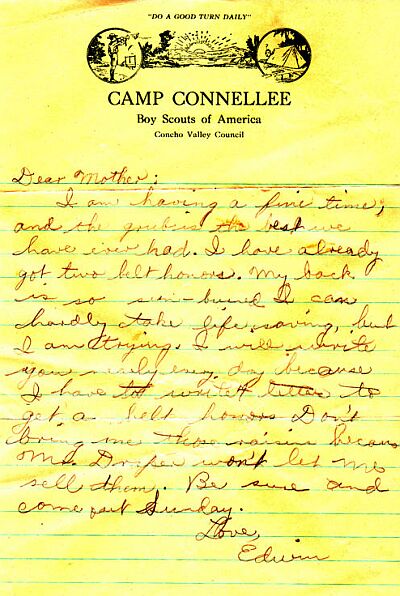 "DO A GOOD TURN DAILY"
CAMP CONNELLEE
Boy Scouts of America
Concho Valley Council
Dear Mother:
I am having a fine time,
and the grub is the best we
have ever had. I have already
got two belt honors. My back
is so sun-burned I can
hardly take life saving, but
I am trying. I will write
you nearly every day because
I have to write letter to
get a belt honors Don't
bring me those raisin becaus
Mr. Draper won't let me
sell them. Be sure and
come out Sunday.
Love,
Edwin